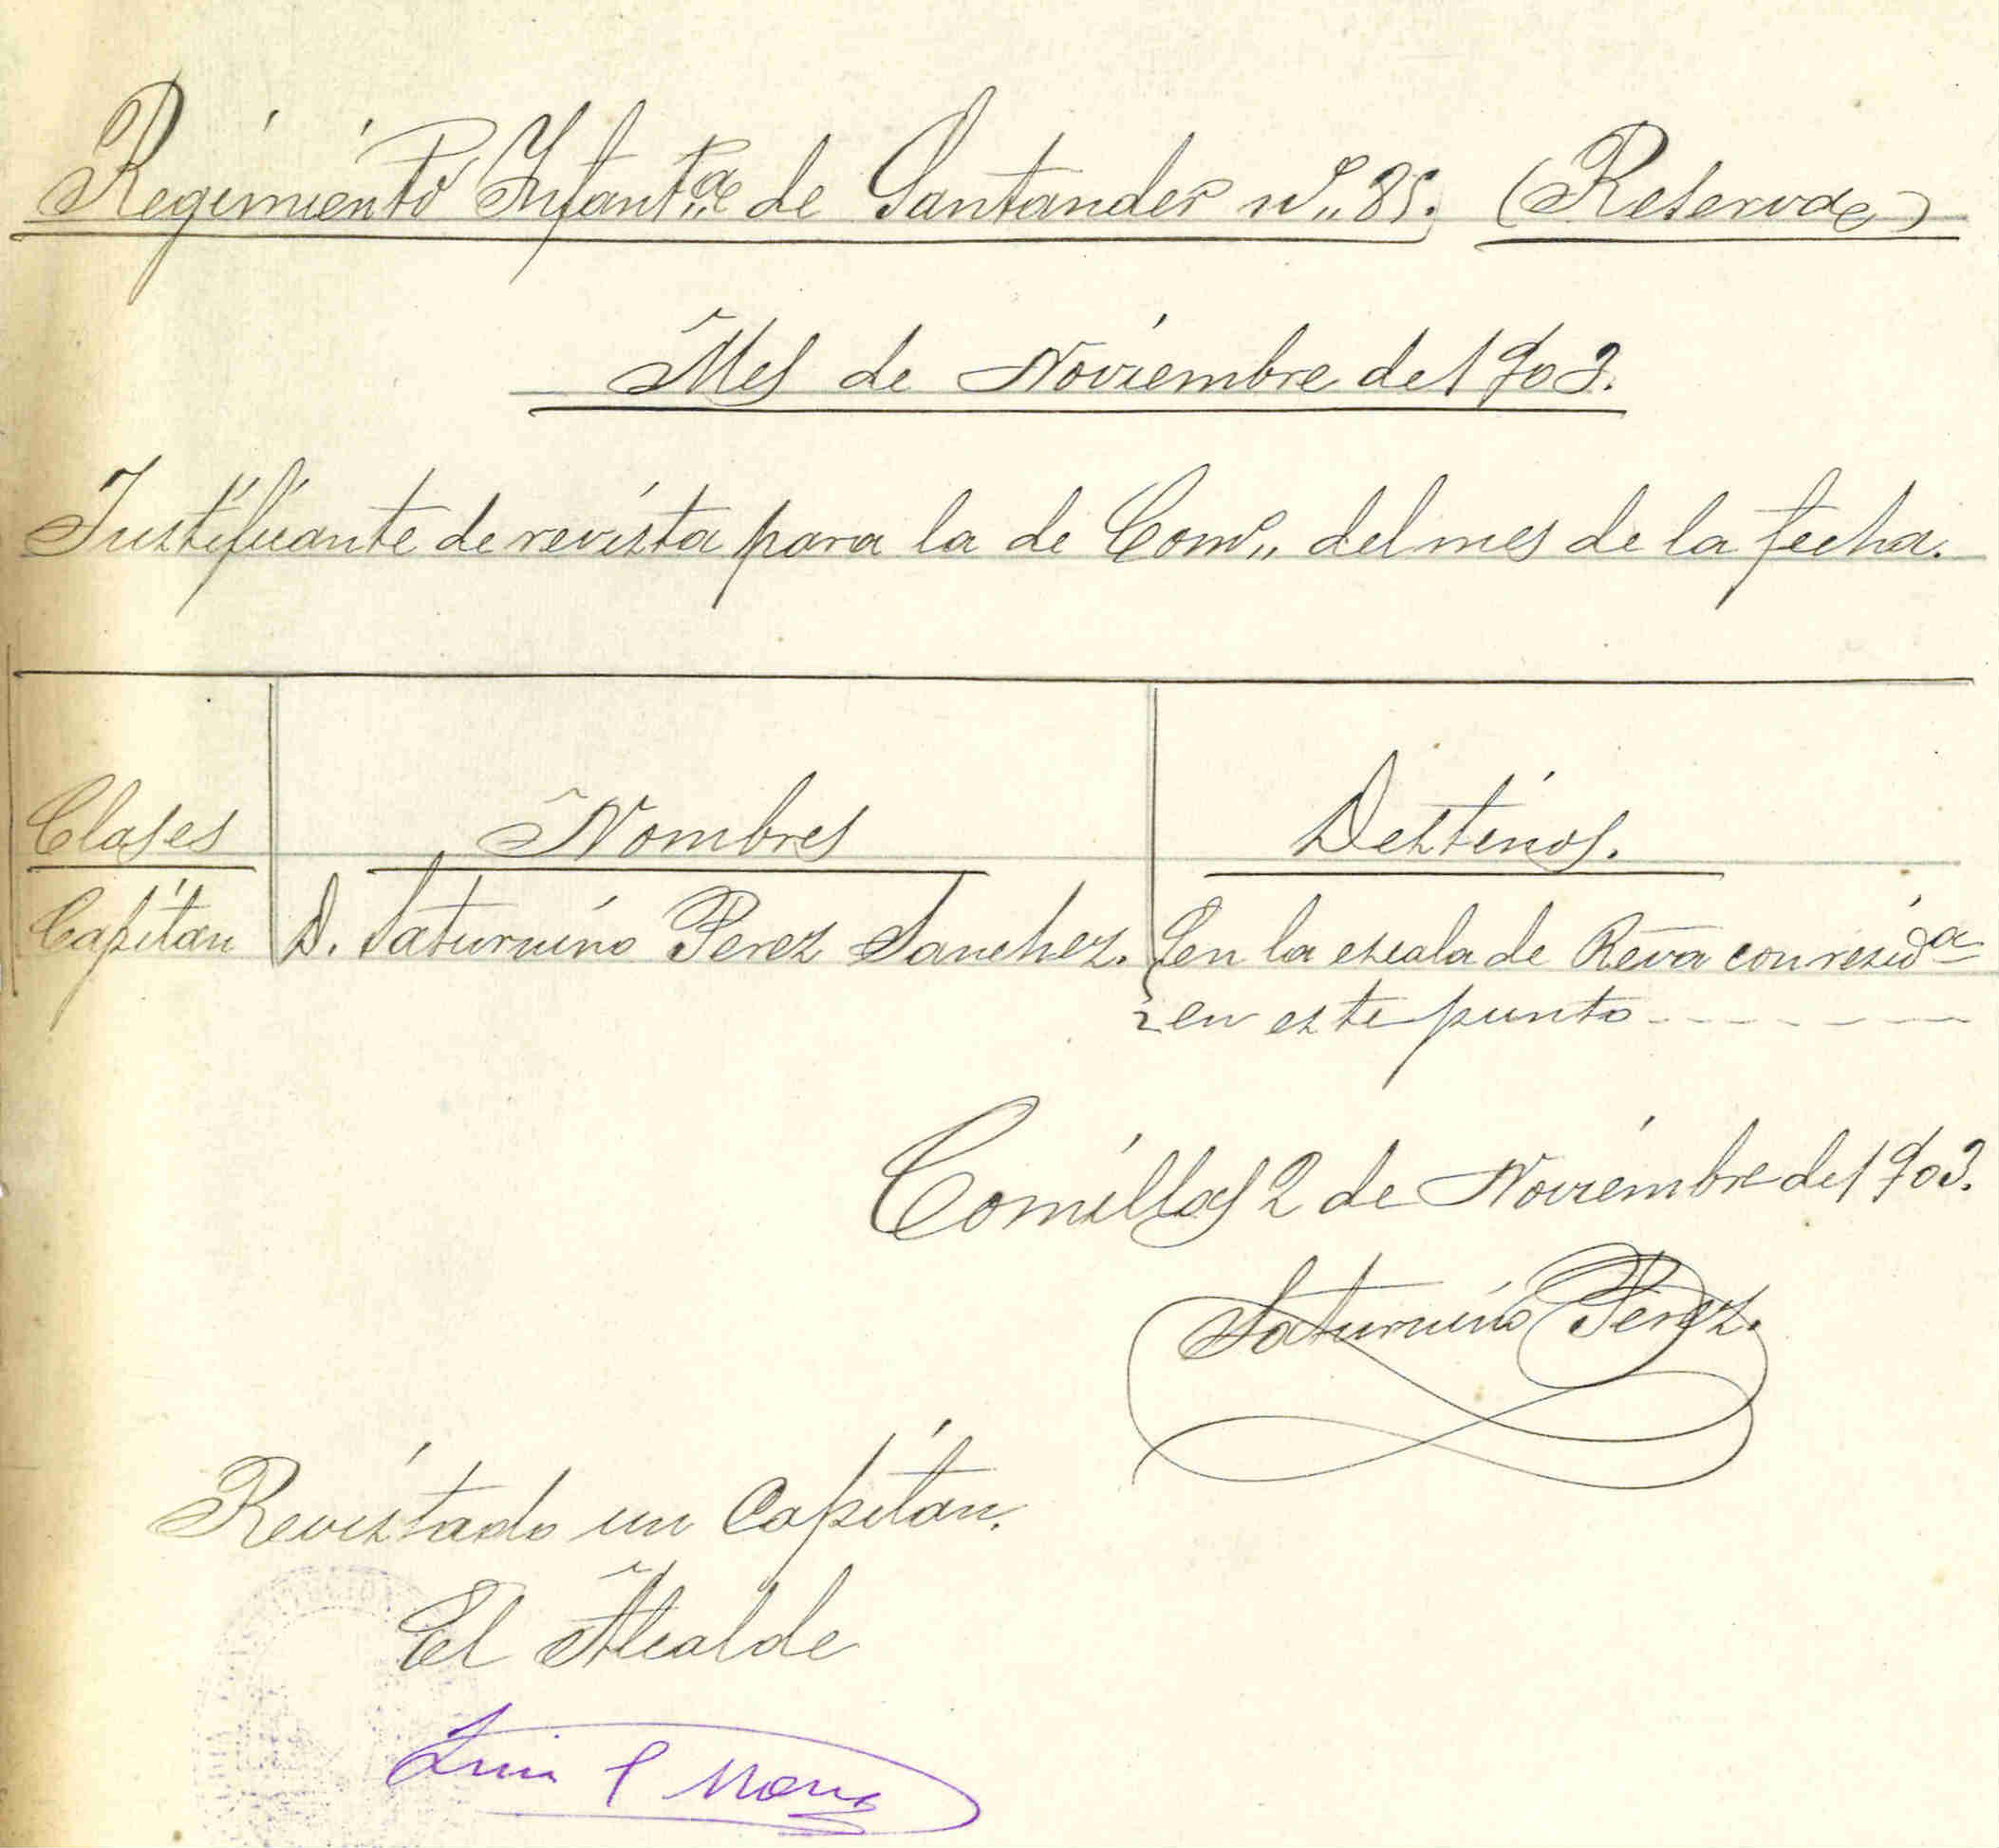 Regimiento Infantª de Santander nº 85. (Reserva)
Mes de Noviembre de 1903.
Justificante de revista para la de Comº del mes de la fecha.
Clases Nombres Destinos.
Capitan D. Saturnino Perez Sanchez. en la escala de Reva con residª
en este punto
Comillas 2 de Noviembre de 1903.
Saturnino Perez.
Revistado un Capitan.
El Alcalde
Luis